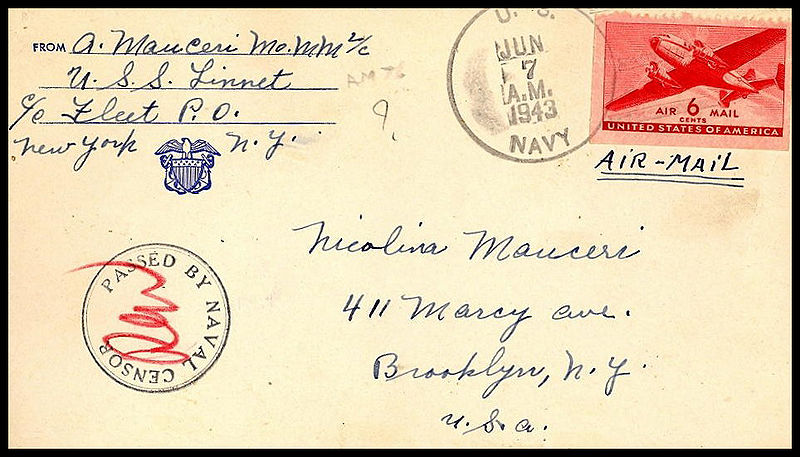 FROM A. Mauceri Mo.M.M 2/c
U. S. S. Linnet
c/o Fleet P. O.
New York N. Y.
U. S.
JUN
7
A.M.
1943
NAVY
AIR 6 MAIL
CENTS
UNITED STATES OF AMERICA
AIR-MAIL
PASSED BY NAVAL CENSOR
Nicolina Mauceri
411 Marcy ave.
Brooklyn, N. Y.
U. S. a.